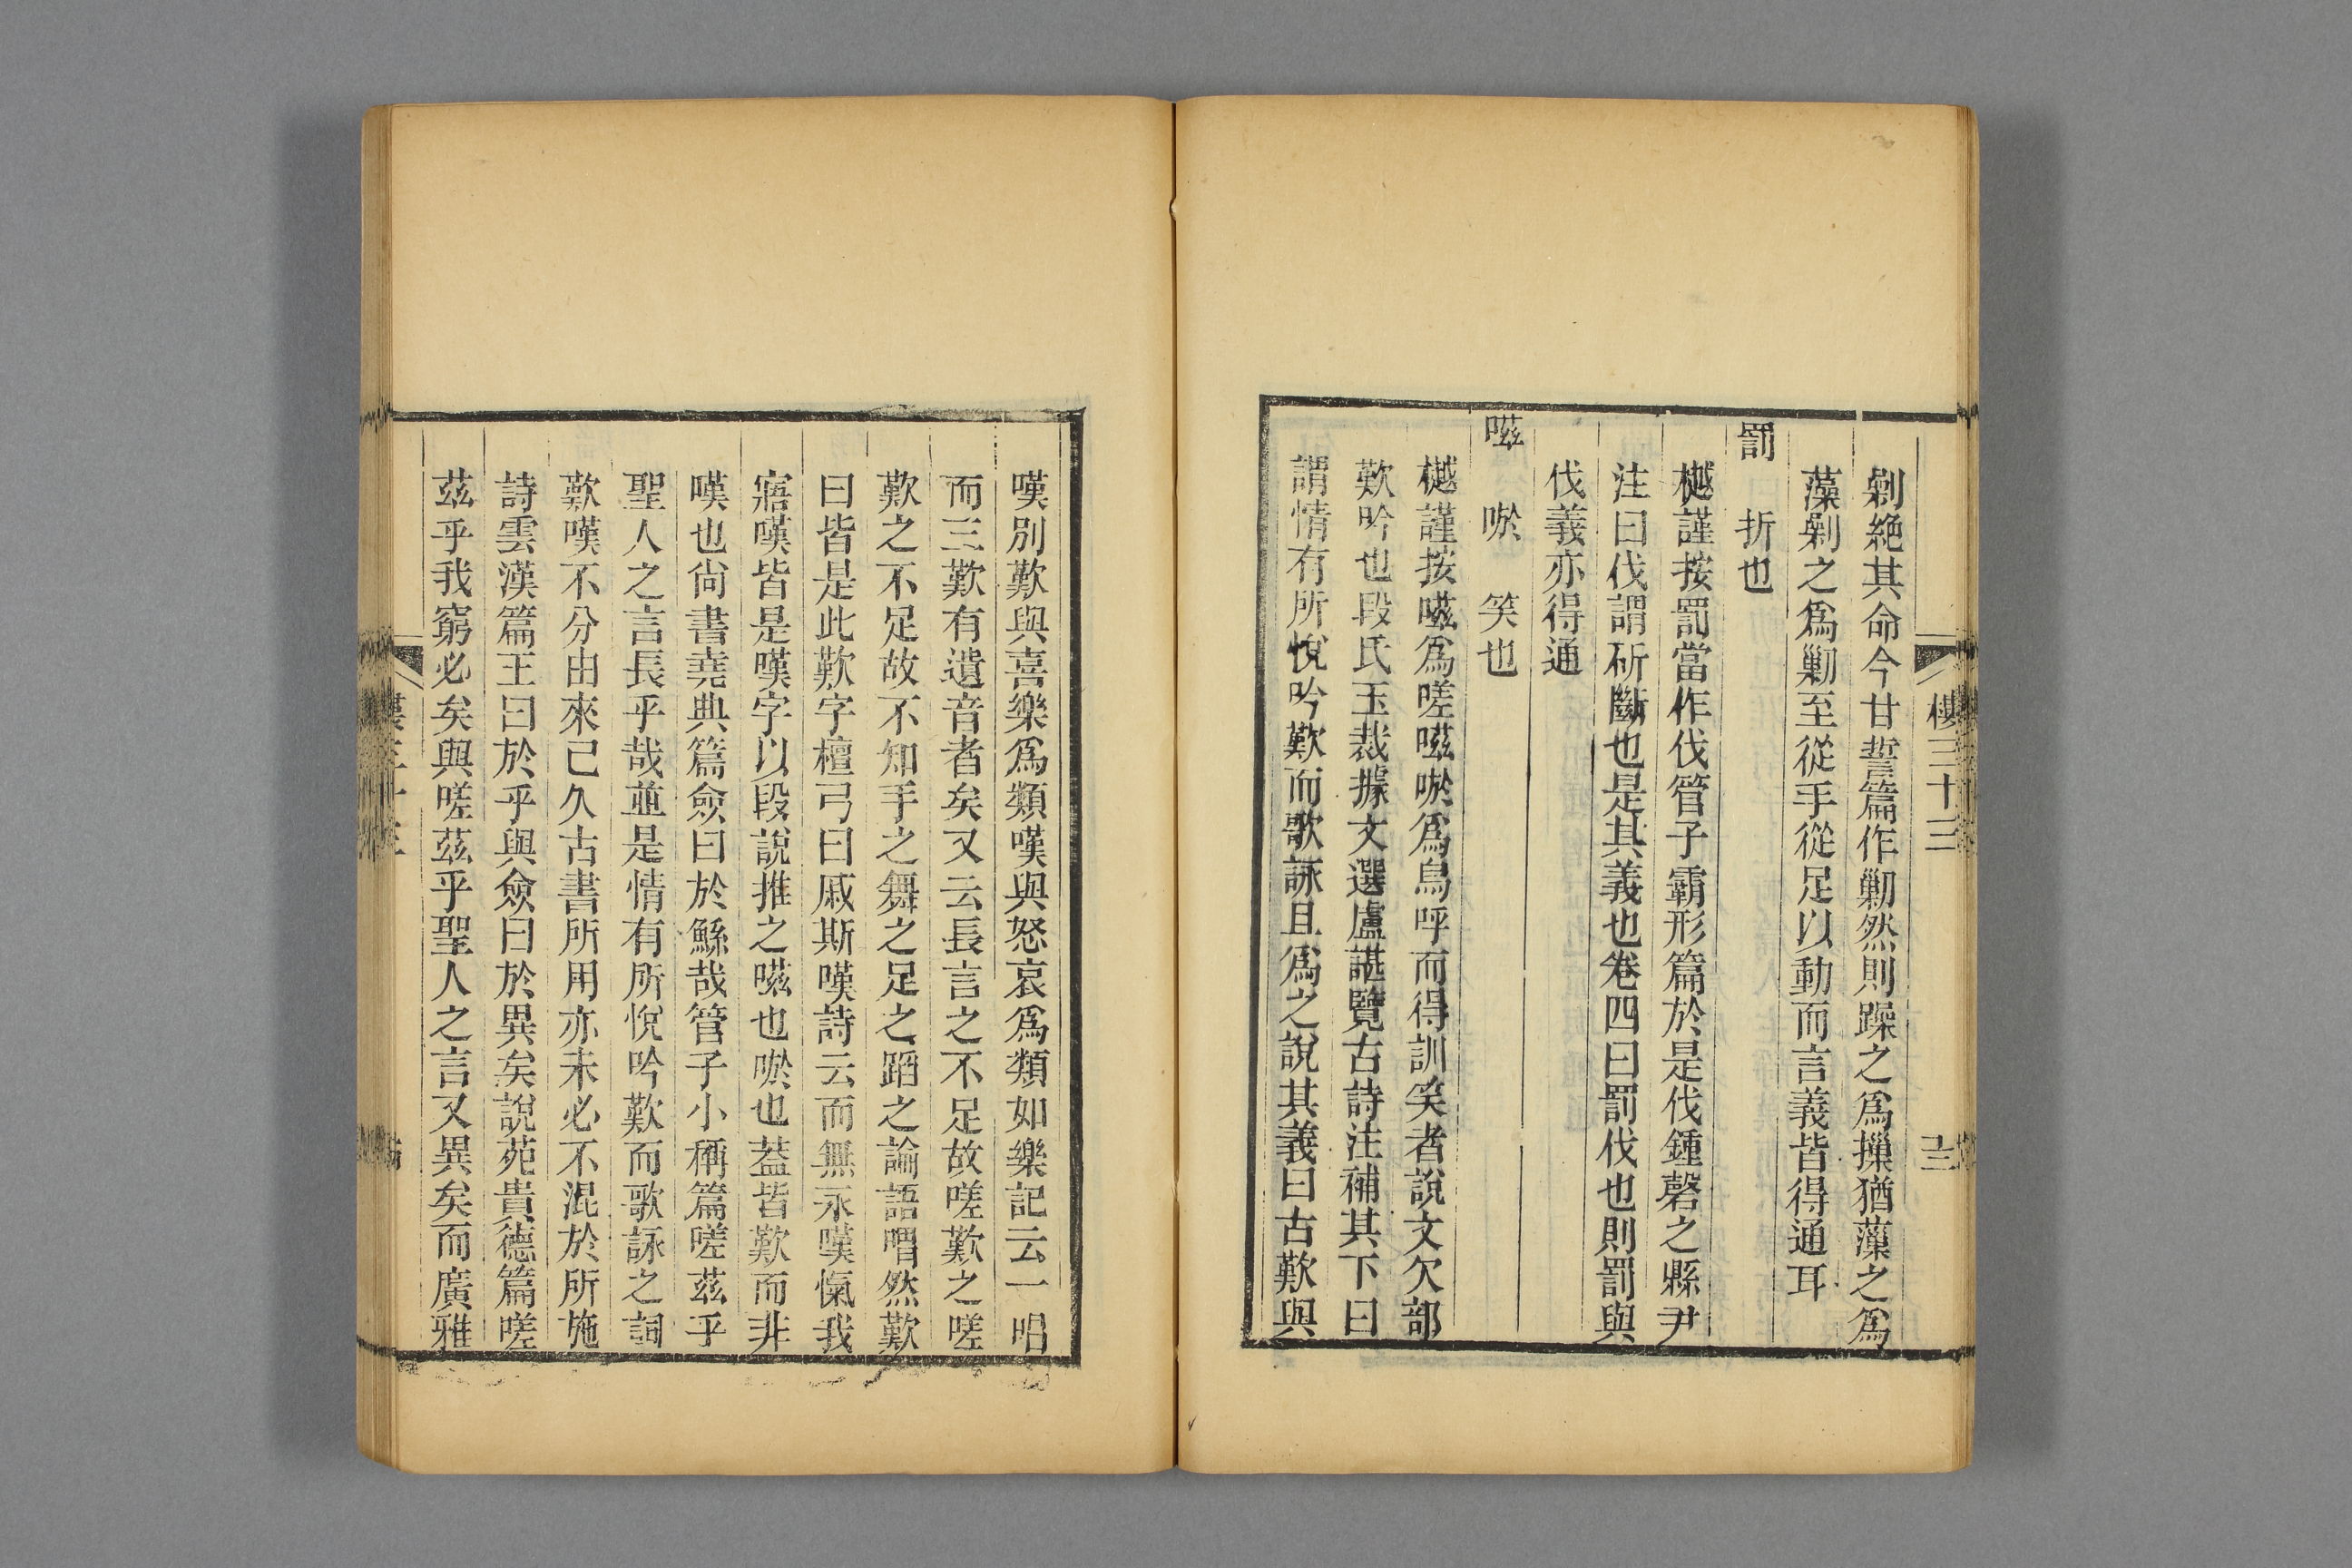 樓三十三
十三
剿絶其命今甘誓篇作勦然則躁之爲摷猶藻之爲
藻剿之爲勦至從手從足以動而言義皆得通耳
罰 折也
樾謹按罰當作伐管子霸形篇於是伐鍾磬之縣尹
注曰伐謂斫斷也是其義也卷四曰罰伐也則罰與
伐義亦得通
嗞 唹 笑也
樾謹按嗞爲嗟嗞唹爲烏呼而得訓笑者說文欠部
歎吟也段氏玉裁據文選盧諶覽古詩注補其下曰
謂情有所悅吟歎而歌詠且爲之說其義曰古歎與
嘆別歎與喜樂爲類嘆與怒哀爲類如樂記云一唱
而三歎有遺音者矣又云長言之不足故嗟歎之嗟
歎之不足故不知手之舞之足之蹈之論語喟然歎
曰皆是此歎字檀弓曰戚斯嘆詩云而無永嘆愾我
寤嘆皆是嘆字以段說推之嗞也唹也葢皆歎而非
嘆也尙書堯典篇僉曰於鯀哉管子小稱篇嗟茲乎
聖人之言長乎哉並是情有所悅吟歎而歌詠之詞
歎嘆不分由來已久古書所用亦未必不混於所施
詩雲漢篇王曰於乎與僉曰於異矣說苑貴德篇嗟
茲乎我窮必矣與嗟茲乎聖人之言又異矣而廣雅